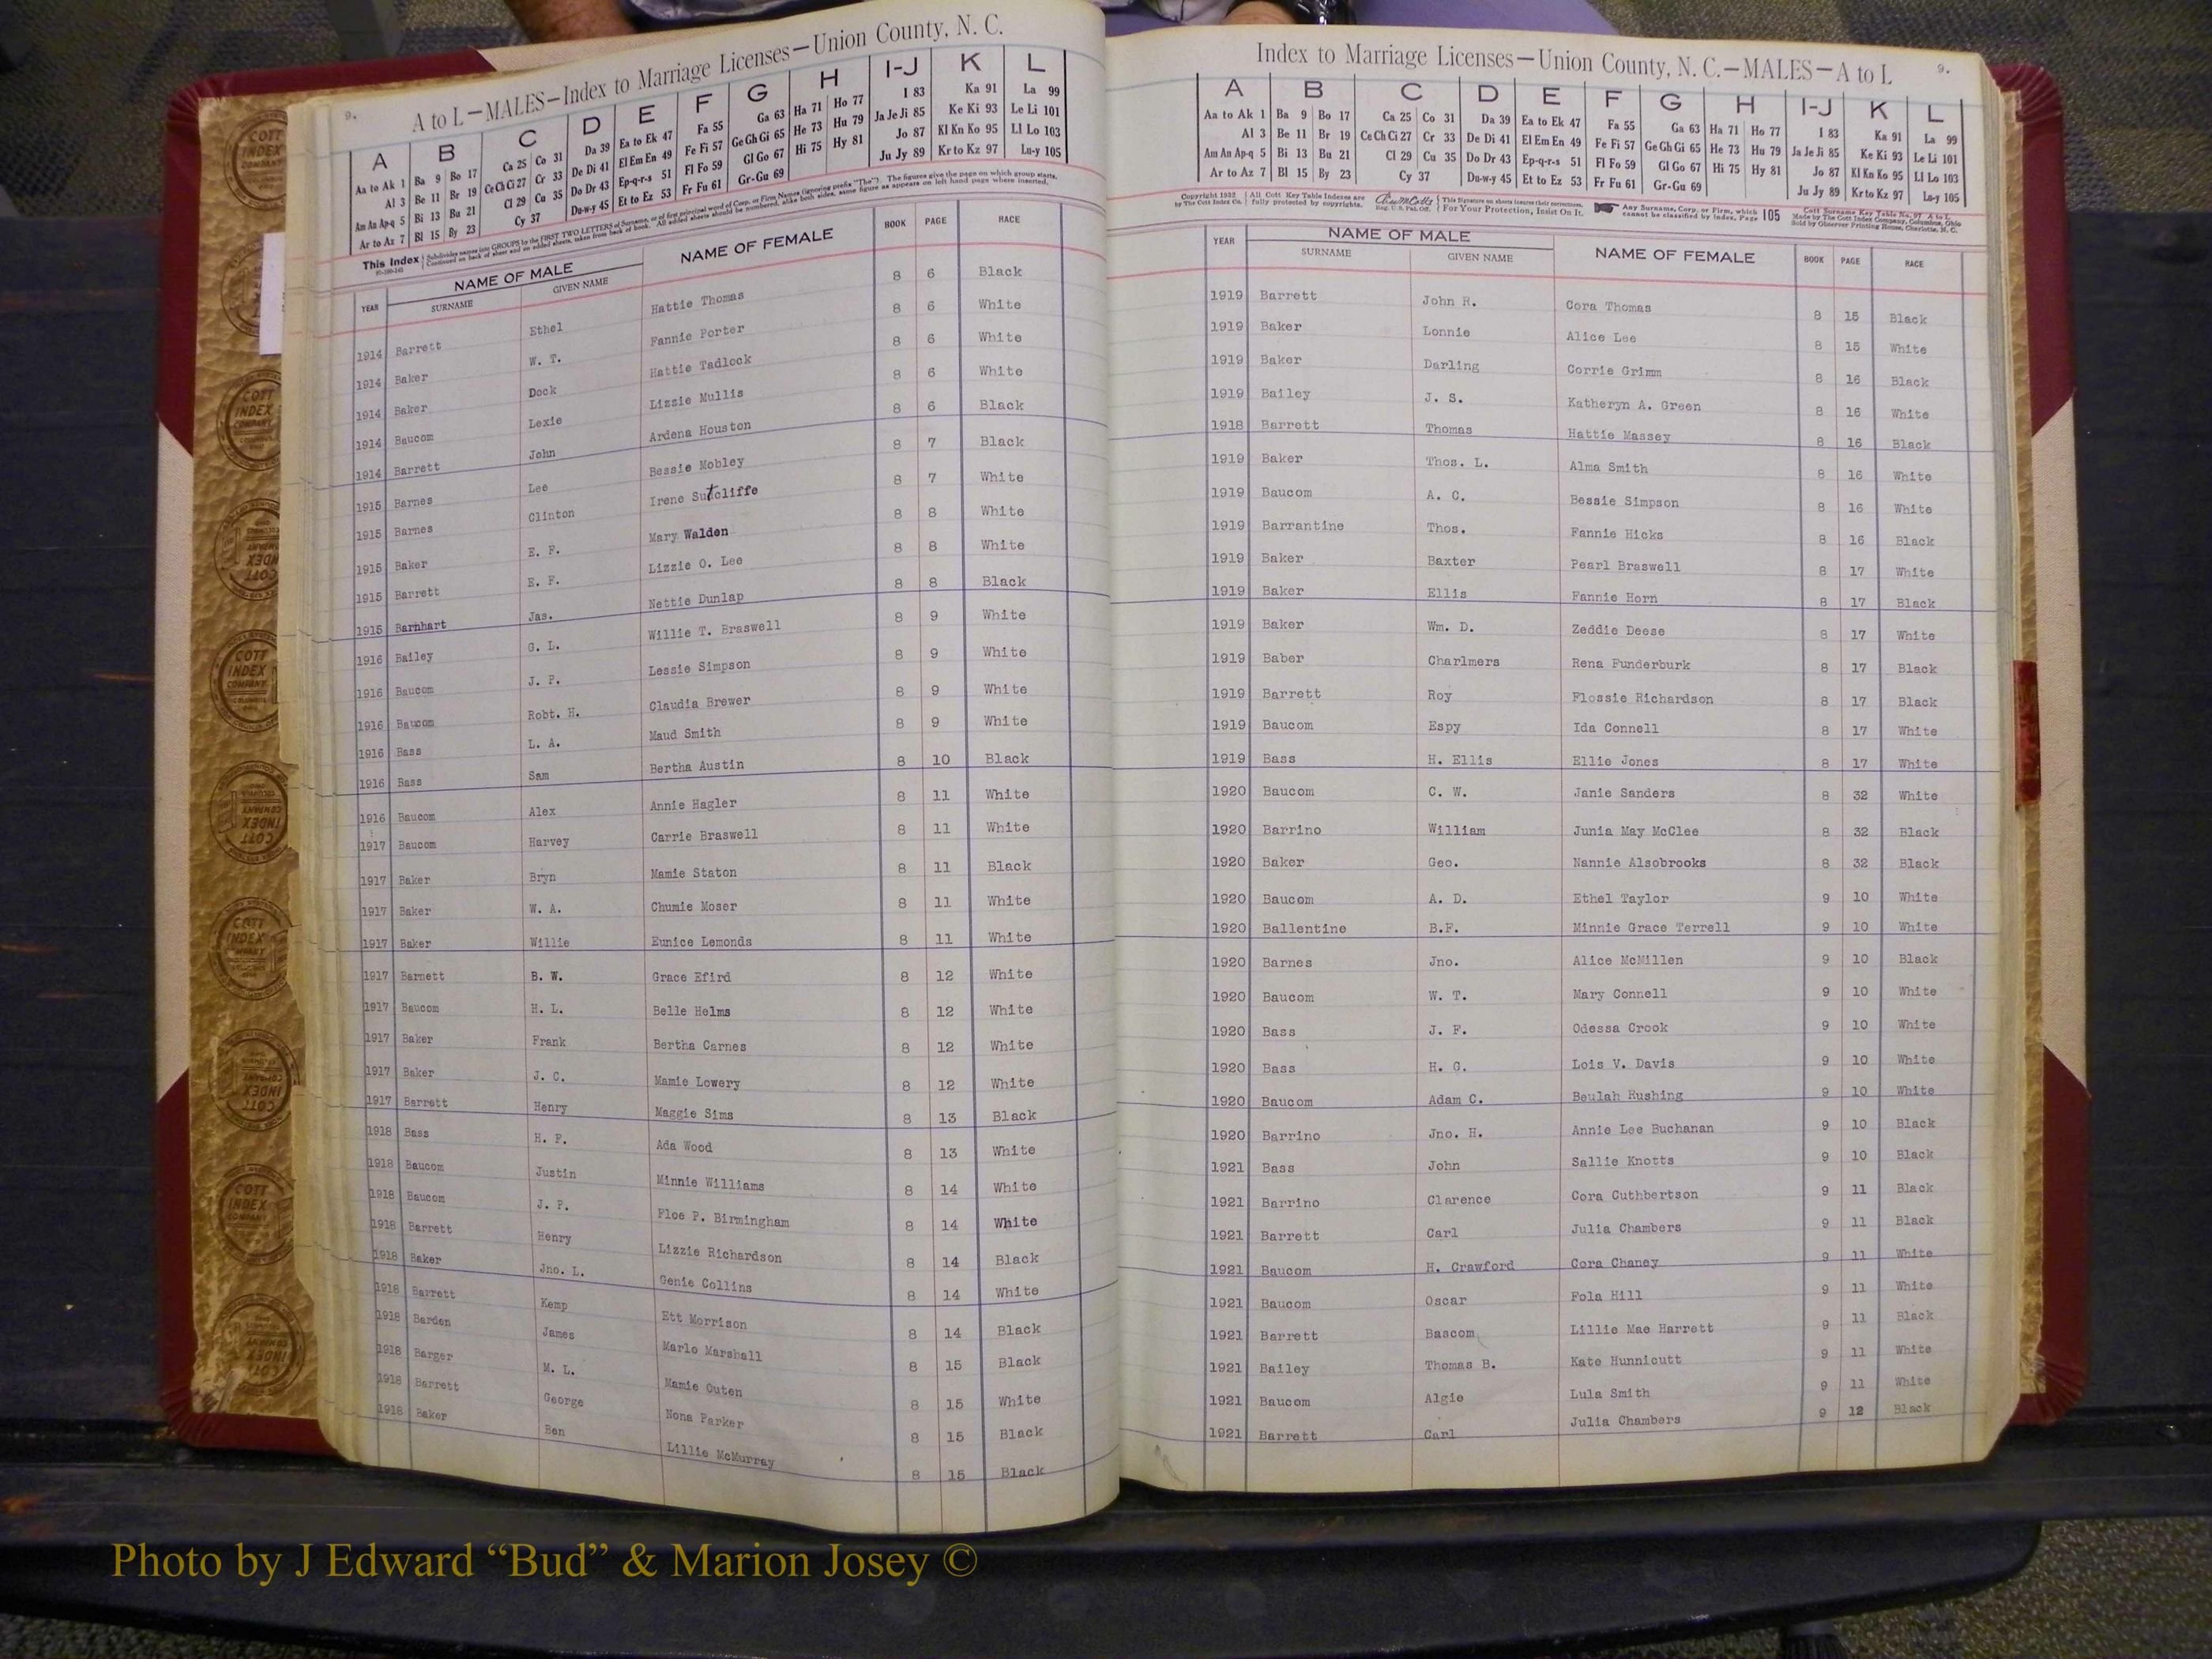 9.
A to L—MALES—Index to Marriage Licenses—Union County, N. C.
A B C D E F G H I-J K L
Aa to Ak 1 Ba 9 Bo 17 Ca 25 Co 31 Da 39 Ea to Ek 47 Fa 55 Ga 63 Ha 71 Ho 77 I 83 Ka 91 La 99
Al 3 Be 11 Br 19 Ce Ch Ci 27 Cr 33 De Di 41 El Em En 49 Fe Fi 57 Ge Gh Gi 65 He 73 Hu 79 Ja Je Ji 85 Ke Ki 93 Le Li 101
Am An Ap-q 5 Bi 13 Bu 21 Cl 29 Cu 35 Do Dr 43 Ep-q-r-s 51 Fl Fo 59 Gl Go 67 Hi 75 Hy 81 Jo 87 Kl Kn Ko 95 Ll Lo 103
Ar to Az 7 Bl 15 By 23 Cy 37 Du-w-y 45 Et to Ez 53 Fr Fu 61 Gr-Gu 69 Ju Jy 89 Kr to Kz 97 Lu-y 105
This Index Subdivides names into GROUPS by the FIRST TWO LETTERS of Surname, or of first principal word of Corp. or Firm Names (ignoring prefix "The"). The figures give the page on which group starts.
Continued on back of sheet and on added sheets, taken from back of book. All added sheets should be numbered, alike both sides, same figure as appears on left hand page where inserted.
YEAR NAME OF MALE NAME OF FEMALE BOOK PAGE RACE
SURNAME GIVEN NAME
1914 Barrett Ethel Hattie Thomas 8 6 Black
1914 Baker W. T. Fannie Porter 8 6 White
1914 Baker Dock Hattie Tadlock 8 6 White
1914 Baucom Lexie Lizzie Mullis 8 6 White
1914 Barrett John Ardena Houston 8 6 Black
1915 Barnes Lee Bessie Mobley 8 7 Black
1915 Barnes Clinton Irene Sutcliffe 8 7 White
1915 Baker E. F. Mary Walden 8 8 White
1915 Barrett E. F. Lizzie O. Lee 8 8 White
1915 Barnhart Jas. Nettie Dunlap 8 8 Black
1916 Bailey G. L. Willie T. Braswell 8 9 White
1916 Baucom J. P. Lessie Simpson 8 9 White
1916 Baucom Robt. H. Claudia Brewer 8 9 White
1916 Bass L. A. Maud Smith 8 9 White
1916 Bass Sam Bertha Austin 8 10 Black
1916 Baucom Alex Annie Hagler 8 11 White
1917 Baucom Harvey Carrie Braswell 8 11 White
1917 Baker Bryn Mamie Staton 8 11 Black
1917 Baker W. A. Chumie Moser 8 11 White
1917 Baker Willie Eunice Lemonds 8 11 White
1917 Barnett B. W. Grace Efird 8 12 White
1917 Baucom H. L. Belle Helms 8 12 White
1917 Baker Frank Bertha Carnes 8 12 White
1917 Baker J. C. Mamie Lowery 8 12 White
1917 Barrett Henry Maggie Sims 8 13 Black
1918 Bass H. F. Ada Wood 8 13 White
1918 Baucom Justin Minnie Williams 8 14 White
1918 Baucom J. P. Floe P. Birmingham 8 14 White
1918 Barrett Henry Lizzie Richardson 8 14 Black
1918 Baker Jno. L. Genie Collins 8 14 White
1918 Barrett Kemp Ett Morrison 8 14 Black
1918 Barden James Marlo Marshall 8 15 Black
1918 Barger M. L. Mamie Outen 8 15 White
1918 Barrett George Nona Parker 8 15 Black
1918 Baker Ben Lillie McMurray 8 15 Black
Index to Marriage Licenses—Union County, N. C.—MALES—A to L
9.
A B C D E F G H I-J K L
Aa to Ak 1 Ba 9 Bo 17 Ca 25 Co 31 Da 39 Ea to Ek 47 Fa 55 Ga 63 Ha 71 Ho 77 I 83 Ka 91 La 99
Al 3 Be 11 Br 19 Ce Ch Ci 27 Cr 33 De Di 41 El Em En 49 Fe Fi 57 Ge Gh Gi 65 He 73 Hu 79 Ja Je Ji 85 Ke Ki 93 Le Li 101
Am An Ap-q 5 Bi 13 Bu 21 Cl 29 Cu 35 Do Dr 43 Ep-q-r-s 51 Fl Fo 59 Gl Go 67 Hi 75 Hy 81 Jo 87 Kl Kn Ko 95 Ll Lo 103
Ar to Az 7 Bl 15 By 23 Cy 37 Du-w-y 45 Et to Ez 53 Fr Fu 61 Gr-Gu 69 Ju Jy 89 Kr to Kz 97 Lu-y 105
Copyright 1932 All Cott Key Table Indexes are This Signature on sheets insures their correctness. Any Surname, Corp. or Firm, which 105 Cott Surname Key Table No. 97 A to L
by The Cott Index Co. fully protected by copyrights. Reg. U. S. Pat. Off. For Your Protection, Insist On It. cannot be classified by Index, Page Made by The Cott Index Company, Columbus, Ohio
Sold by Observer Printing House, Charlotte, N. C.
YEAR NAME OF MALE NAME OF FEMALE BOOK PAGE RACE
SURNAME GIVEN NAME
1919 Barrett John R. Cora Thomas 8 15 Black
1919 Baker Lonnie Alice Lee 8 15 White
1919 Baker Darling Corrie Grimm 8 16 Black
1919 Bailey J. S. Katheryn A. Green 8 16 White
1918 Barrett Thomas Hattie Massey 8 16 Black
1919 Baker Thos. L. Alma Smith 8 16 White
1919 Baucom A. C. Bessie Simpson 8 16 White
1919 Barrantine Thos. Fannie Hicks 8 16 Black
1919 Baker Baxter Pearl Braswell 8 17 White
1919 Baker Ellis Fannie Horn 8 17 Black
1919 Baker Wm. D. Zeddie Deese 8 17 White
1919 Baber Charlmers Rena Funderburk 8 17 Black
1919 Barrett Roy Flossie Richardson 8 17 Black
1919 Baucom Espy Ida Connell 8 17 White
1919 Bass H. Ellis Ellie Jones 8 17 White
1920 Baucom C. W. Janie Sanders 8 32 White
1920 Barrino William Junia May McClee 8 32 Black
1920 Baker Geo. Nannie Alsobrooks 8 32 Black
1920 Baucom A. D. Ethel Taylor 9 10 White
1920 Ballentine B.F. Minnie Grace Terrell 9 10 White
1920 Barnes Jno. Alice McMillen 9 10 Black
1920 Baucom W. T. Mary Connell 9 10 White
1920 Bass J. F. Odessa Crook 9 10 White
1920 Bass H. G. Lois V. Davis 9 10 White
1920 Baucom Adam C. Beulah Rushing 9 10 White
1920 Barrino Jno. H. Annie Lee Buchanan 9 10 Black
1921 Bass John Sallie Knotts 9 10 Black
1921 Barrino Clarence Cora Cuthbertson 9 11 Black
1921 Barrett Carl Julia Chambers 9 11 Black
1921 Baucom H. Crawford Cora Chaney 9 11 White
1921 Baucom Oscar Fola Hill 9 11 White
1921 Barrett Bascom Lillie Mae Harrett 9 11 Black
1921 Bailey Thomas B. Kate Hunnicutt 9 11 White
1921 Baucom Algie Lula Smith 9 11 White
1921 Barrett Carl Julia Chambers 9 12 Black
Photo by J Edward “Bud” & Marion Josey ©